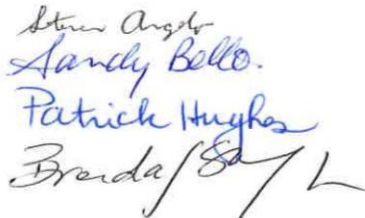 Steven Angelo
Sandy Bello.
Patrick Hughes
Brenda